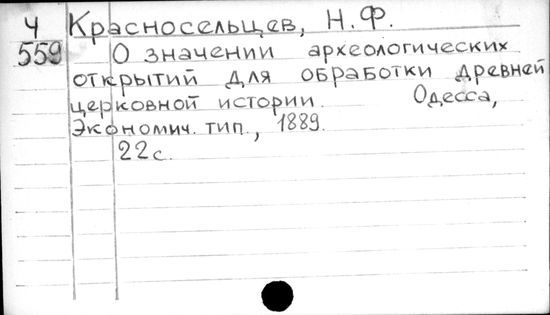 Ч Красносельцев, Н.Ф.
559 О значении археологических
открытий для обработки древней
церковной истории. Одесса,
Экономич. тип., 1889.
22с.